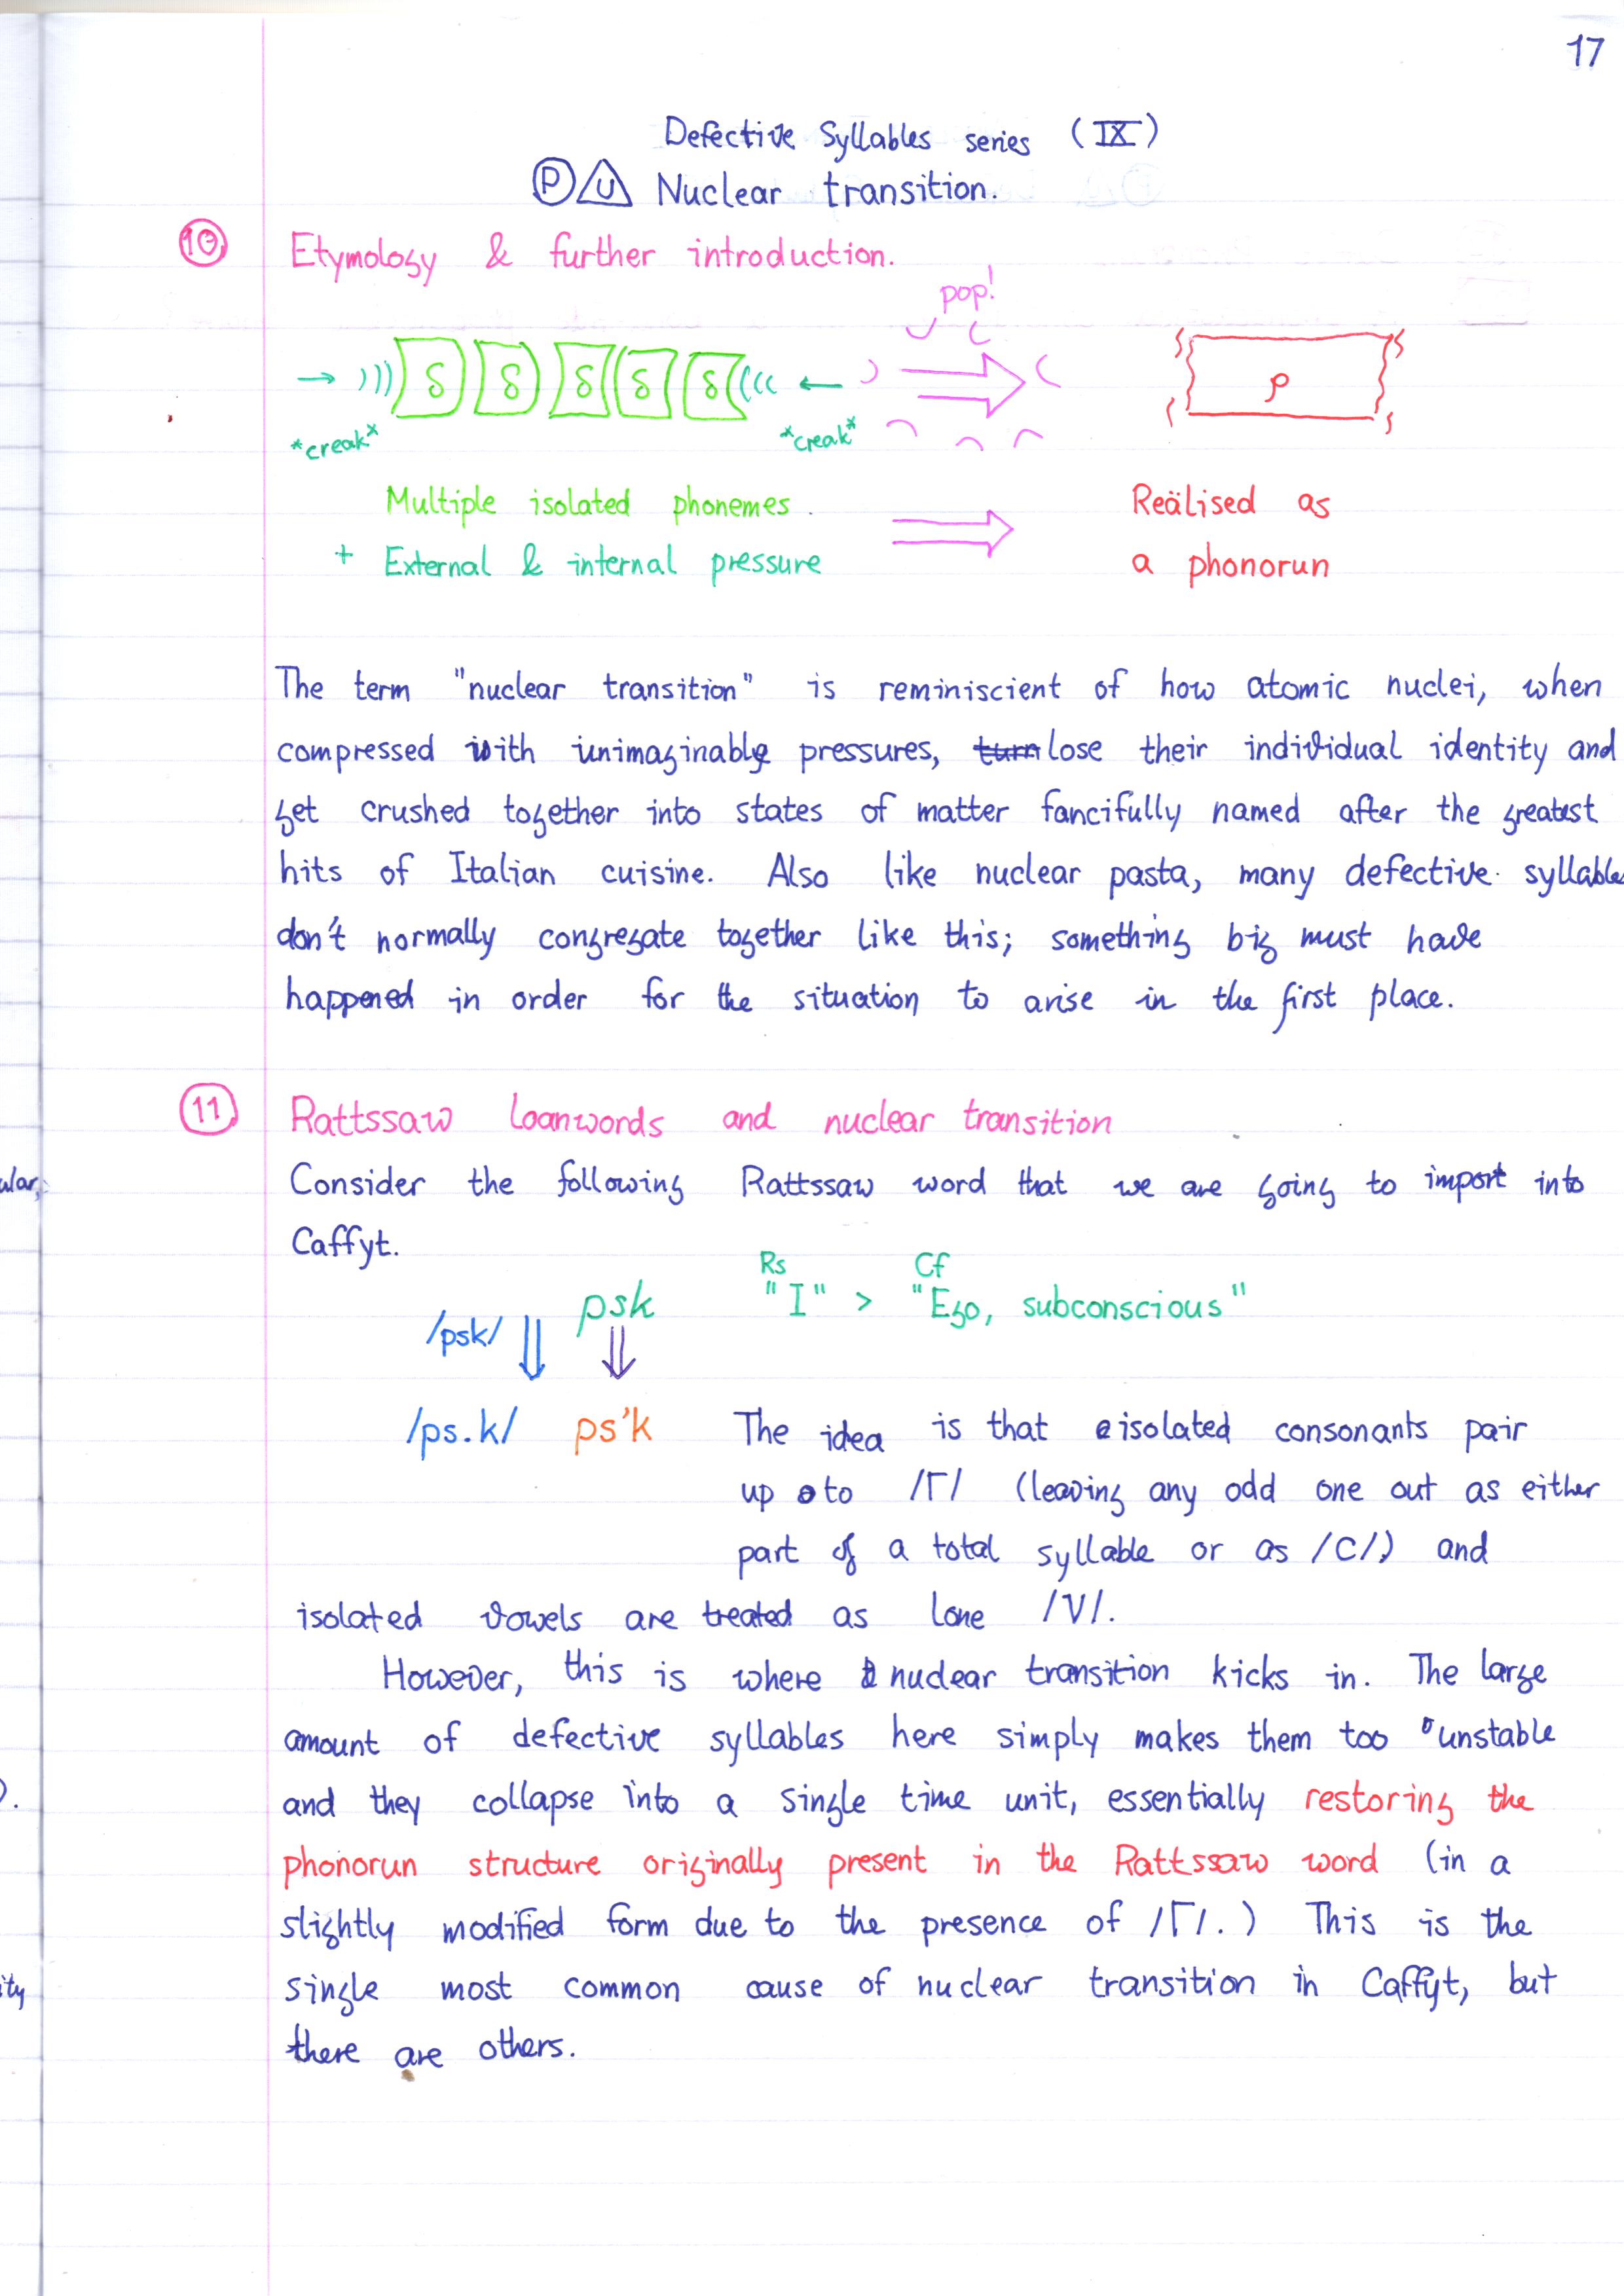 17
Defective Syllables series (IX)
P U Nuclear transition.
10 Etymology & further introduction.
pop!
→ ))) δ δ δ δ δ ((( ← ρ
*creak* *creak*
Multiple isolated phonemes. ⇒ Reälised as
+ External & internal pressure a phonorun
The term "nuclear transition" is reminiscient of how atomic nuclei, when
compressed with unimaginable pressures, turn lose their individual identity and
get crushed together into states of matter fancifully named after the greatest
hits of Italian cuisine. Also like nuclear pasta, many defective syllables
don't normally congregate together like this; something big must have
happened in order for the situation to arise in the first place.
11 Rattssaw loanwords and nuclear transition
ular,
Consider the following Rattssaw word that we are going to import into
Caffyt.
Rs Cf
/psk/ ⇓ psk ⇓ "I" > "Ego, subconscious"
/ps.k/ ps'k The idea is that isolated consonants pair
up to /Γ/ (leaving any odd one out as either
part of a total syllable or as /C/) and
isolated vowels are treated as lone /V/.
However, this is where nuclear transition kicks in. The large
amount of defective syllables here simply makes them too unstable
).
and they collapse into a single time unit, essentially restoring the
phonorun structure originally present in the Rattssaw word (in a
slightly modified form due to the presence of /Γ/.) This is the
ity
single most common cause of nuclear transition in Caffyt, but
there are others.